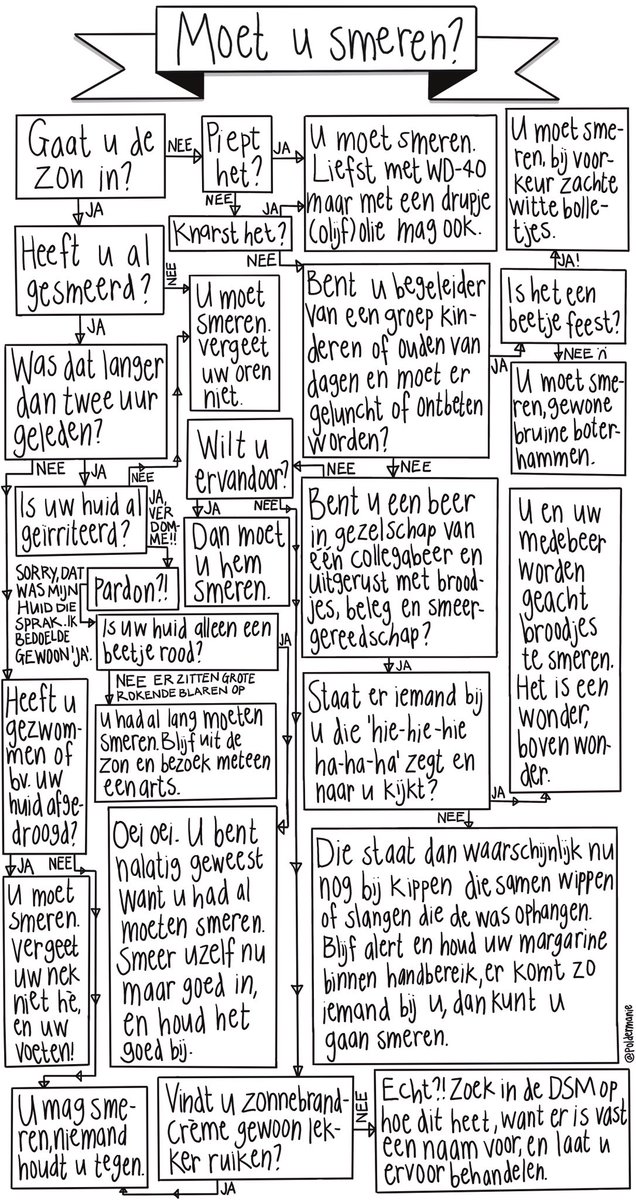 Moet u smeren?
Gaat u de
zon in?
NEE
Piept
het?
JA
U moet smeren.
Liefst met WD-40
maar met een drupje
(olijf)olie mag ook.
U moet sme-
ren, bij voor-
keur zachte
witte bolle-
tjes.
JA
NEE
JA
Knarst het?
NEE
JA!
Heeft u al
gesmeerd?
NEE
U moet
smeren.
vergeet
uw oren
niet.
Bent u begeleider
van een groep kin-
deren of ouden van
dagen en moet er
geluncht of ontbeten
worden?
JA
Is het een
beetje feest?
NEE
U moet sme-
ren, gewone
bruine boter-
hammen.
JA
Was dat langer
dan twee uur
geleden?
NEE
JA
NEE
Wilt u
ervandoor?
NEE
NEE
JA
NEE
Is uw huid al
geïrriteerd?
JA,
VER
DOM-
ME!!
Dan moet
u hem
smeren.
Bent u een beer
in gezelschap van
één collegabeer en
uitgerust met brood-
jes, beleg en smeer-
gereedschap?
U en uw
medebeer
worden
geacht
broodjes
te smeren.
Het is een
wonder,
boven won-
der.
SORRY, DAT
WAS MIJN
HUID DIE
SPRAK. IK
BEDOELDE
GEWOON 'JA'.
Pardon?!
Is uw huid alleen een
beetje rood?
JA
JA
NEE ER ZITTEN GROTE
ROKENDE BLAREN OP
Heeft u
gezwom-
men of
bv. uw
huid afge-
droogd?
u had al lang moeten
smeren. Blijf uit de
zon en bezoek meteen
een arts.
Staat er iemand bij
u die 'hie-hie-hie
ha-ha-ha' zegt en
naar u kijkt?
JA
NEE
JA
NEE
Oei oei. U bent
nalatig geweest
want u had al
moeten smeren.
Smeer uzelf nu
maar goed in,
en houd het
goed bij.
Die staat dan waarschijnlijk nu
nog bij kippen die samen wippen
of slangen die de was ophangen.
Blijf alert en houd uw margarine
binnen handbereik, er komt zo
iemand bij u, dan kunt u
gaan smeren.
U moet
smeren.
Vergeet
uw nek
niet hè,
en uw
voeten!
@Poldermanie
U mag sme-
ren, niemand
houdt u tegen.
Vindt u zonnebrand-
crème gewoon lek-
ker ruiken?
NEE
JA
Echt?! Zoek in de DSM op
hoe dit heet, want er is vast
een naam voor, en laat u
ervoor behandelen.